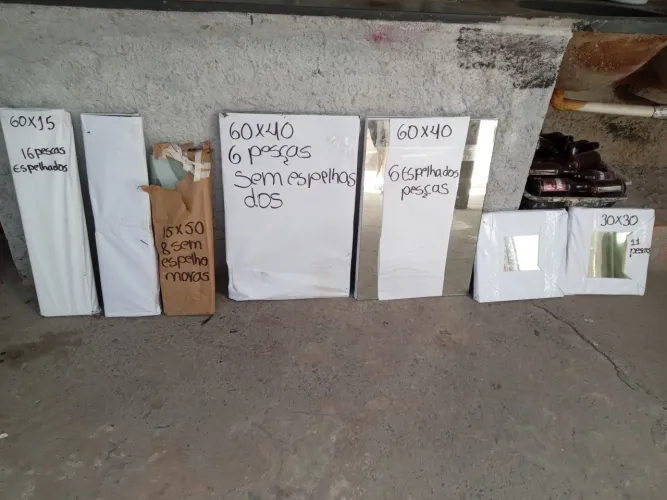 60X15
16 pesças
Espelhados
15X50
8 sem
espelho
moras
60X40
6 pesças
Sem espelhas
dos
60X40
6 Espelhados
pesças
30X30
21
pesças